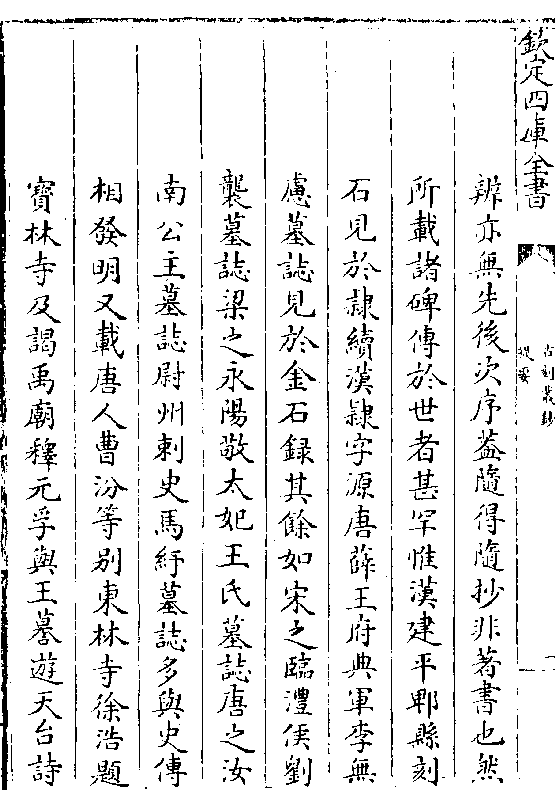 欽定四庫全書
古刻叢鈔
提要
辨亦無先後次序葢隨得隨抄非著書也然
所載諸碑傳於世者甚罕惟漢建平郫縣刻
石見於隷續漢隷字源唐薛王府典軍李無
慮墓誌見於金石録其餘如宋之臨澧侯劉
襲墓誌梁之永陽敬太妃王氏墓誌唐之汝
南公主墓誌尉州刺史馬紓墓誌多與史傳
相發明又載唐人曹汾等别東林寺徐浩題
寳林寺及謁禹廟釋元孚與王謩遊天台詩